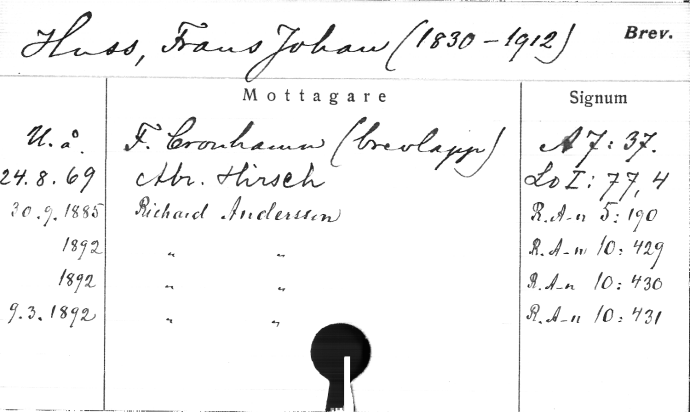 Huss, Frans Johan (1830–1912) Brev.
Mottagare Signum
U. å. F. Cronhamn (brevlapp) A 7: 37.
24.8.69 Abr. Hirsch Lo I: 77, 4
30.9.1885 Richard Andersson R. A-n 5: 190
1892 " " R. A-n 10: 429
1892 " " R. A-n 10: 430
9.3.1892 " " R. A-n 10: 431